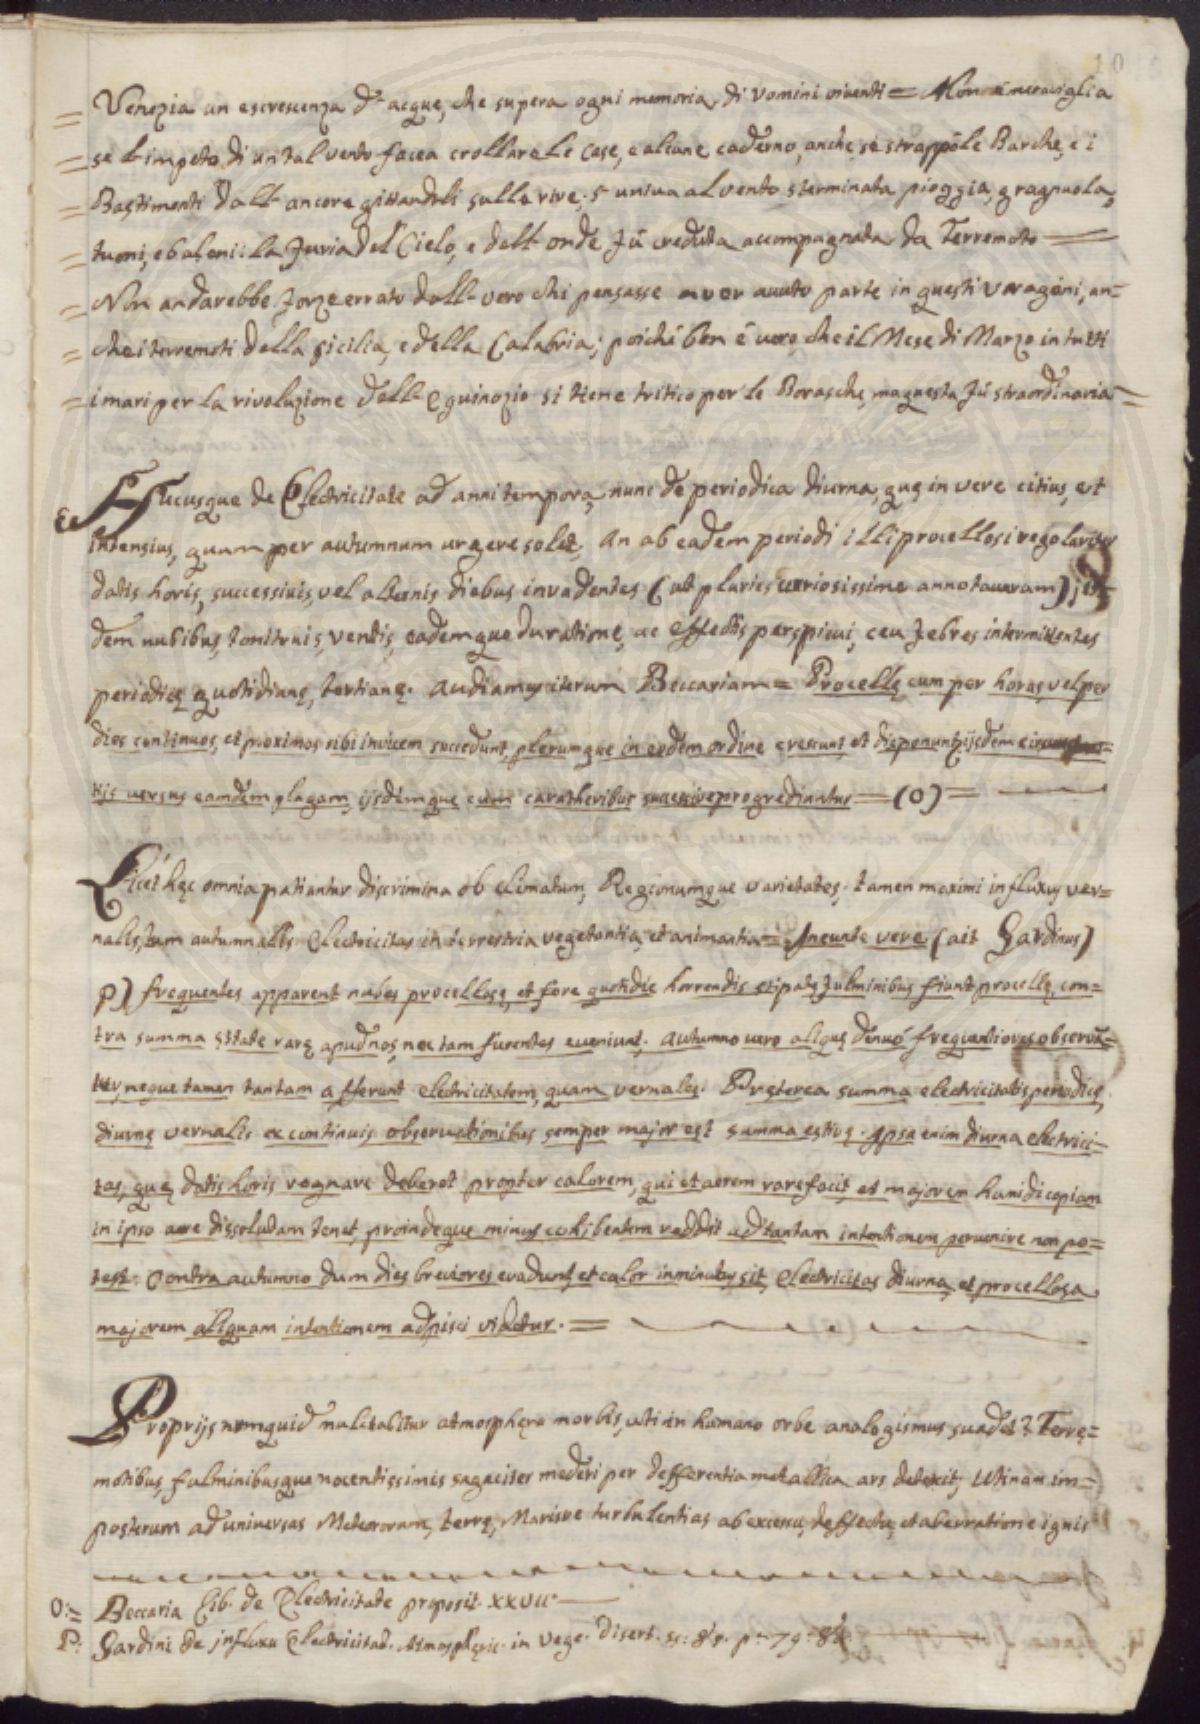 10
= Venezia un escrescenza d'acque, che supera ogni memoria di vomini viventi = Non è meraviglia
= se l'impeto di un tal vento facea crollare le case, e alcune caderno, anche si strappòle Barche, e i
= Bastimenti dall'ancore gittandoli sulle rive; s'univa al vento sterminata pioggia, gragnuola,
= tuoni, e baleni: la furia del Cielo, e dell'onde fù creduta accompagnata da Terremoto =
= Non andarebbe forze errato dall vero chi pensasse aver avuto parte in questi voragini, an=
= che i terremoti della sicilia, e della Calabria; poiché ben é vero, che il Mese di Marzo in tutti
= i mari per la rivoluzione dell'Equinozio si tiene tritico per le Borasche, ma questa fù straordinaria =
Hucusque de Electricitate ad anni tempora, nunc de periodica diurna, quę in vere citius, et
intensius, quam per autumnum urgere solet, An ab eadem periodi illi procellosi regolariter
datis horis, successivis, vel alternis diebus invadentes (ut pluries curiosissime annotaveram) iis=
dem nubibus, tonitruis, ventis, eademque duratione, ac effectis perspicui, ceu febres intermittentes
periodicę quotidianę, tertianę. Audiamus iterum Beccariam = Procellę cum per horas, vel per
dies continuos, et proximos sibi invicem succedunt, plerumque in eodem ordine crescunt, et disponunt, iisdem circumstan=
tiis versus eamdem plagam, ijsdemque cum caractheribus successive progrediuntur = (O) =
Licet hęc omnia patiantur discrimina ob climatum, Regionumque varietates. tamen maximi influxus ver=
nalis, tum autumnallis Electricitas in terrestria vegetantia, et animantia = Ineunte vere (ait Gardinus)
P) frequentes apparent nubes procellosę, et fere quotidie horrendis stipatę fulminibus fiunt procellę, con=
tra summa ęstate rarę apud nos, nec tam furentes eveniunt. Autumno vero aliquę denuó frequentiores observan=
tur, neque tamen tantam afferunt electricitatem, quam vernales. Pręterea summa electricitatis periodicę
diurnę vernalis ex continuis observationibus semper major est summa estivę. Ipsa enim diurna electrici=
tas, quę datis horis regnare deberet propter calorem, qui et aerem rarefacit et majorem humidi copiam
in ipso aere dissolutam tenet, proindeque minus cohibentem reddit ad tantam intentionem pervenire non po=
test. Contra autumno dum dies breviores evadunt, et calor imminutus sit, Electricitas diurna, et procellosa
majorem aliquam intentionem adpisci videtur. =
Proprijs numquid malctabitur atmosphęra morbis, uti in humano orbe analogismus suadet? Terrę=
motibus, fulminibusque nocentissimis sagaciter mederi per defferentia metallica ars detexit; Utinam im=
posterum ad universas Meteororum, terrę, Marisve turbulentias ab excessu, deffectu, et aberratione ignis
O: = Beccaria Lib. de Electricitate proposit XXVII.
P: Gardini de influxu Electricitat. Atmosphęric. in vege. Disert.